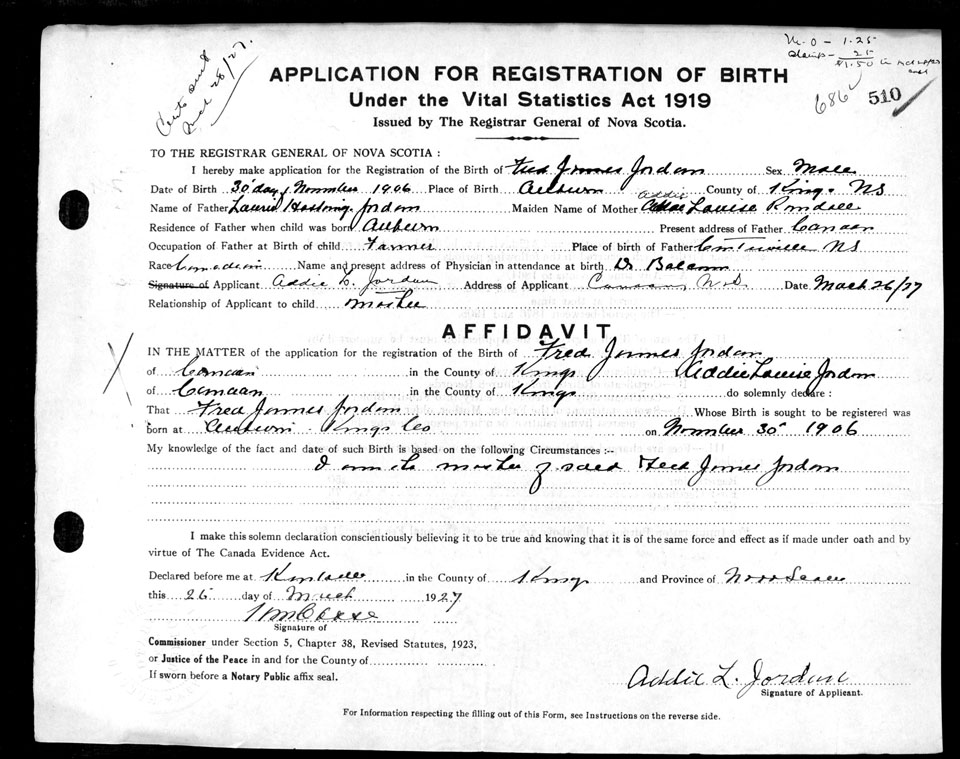 M.O - 1.25
Stamp - 25
$1.50
Cert sent
Mch 28/27.
686
510
APPLICATION FOR REGISTRATION OF BIRTH
Under the Vital Statistics Act 1919
Issued by The Registrar General of Nova Scotia.
TO THE REGISTRAR GENERAL OF NOVA SCOTIA :
I hereby make application for the Registration of the Birth of Fred James Jordan Sex Male
Addie
Date of Birth 30 day November 1906 Place of Birth Auburn County of Kings NS
Name of Father Laurie Jordan Maiden Name of Mother Louise Randall
Residence of Father when child was born Auburn Present address of Father Canaan
Occupation of Father at Birth of child Farmer Place of birth of Father Centreville NS
Race Canadian Name and present address of Physician in attendance at birth Dr Balcom
Signature of Applicant Addie L. Jordan Address of Applicant Canaan, N.S. Date March 26/27
Relationship of Applicant to child mother
AFFIDAVIT
IN THE MATTER of the application for the registration of the Birth of Fred James Jordan
of Canaan in the County of Kings Addie Louise Jordan
of Canaan in the County of Kings do solemnly declare :
That Fred James Jordan Whose Birth is sought to be registered was
born at Auburn Kings Co on November 30 1906
My knowledge of the fact and date of such Birth is based on the following Circumstances :--
I am the mother of said Fred James Jordan
I make this solemn declaration conscientiously believing it to be true and knowing that it is of the same force and effect as if made under oath and by
virtue of The Canada Evidence Act.
Declared before me at Kentville in the County of Kings and Province of Nova Scotia
this 26 day of March 1927
Signature of
Commissioner under Section 5, Chapter 38, Revised Statutes, 1923,
or Justice of the Peace in and for the County of
If sworn before a Notary Public affix seal.
Addie L. Jordan
Signature of Applicant.
For Information respecting the filling out of this Form, see Instructions on the reverse side.